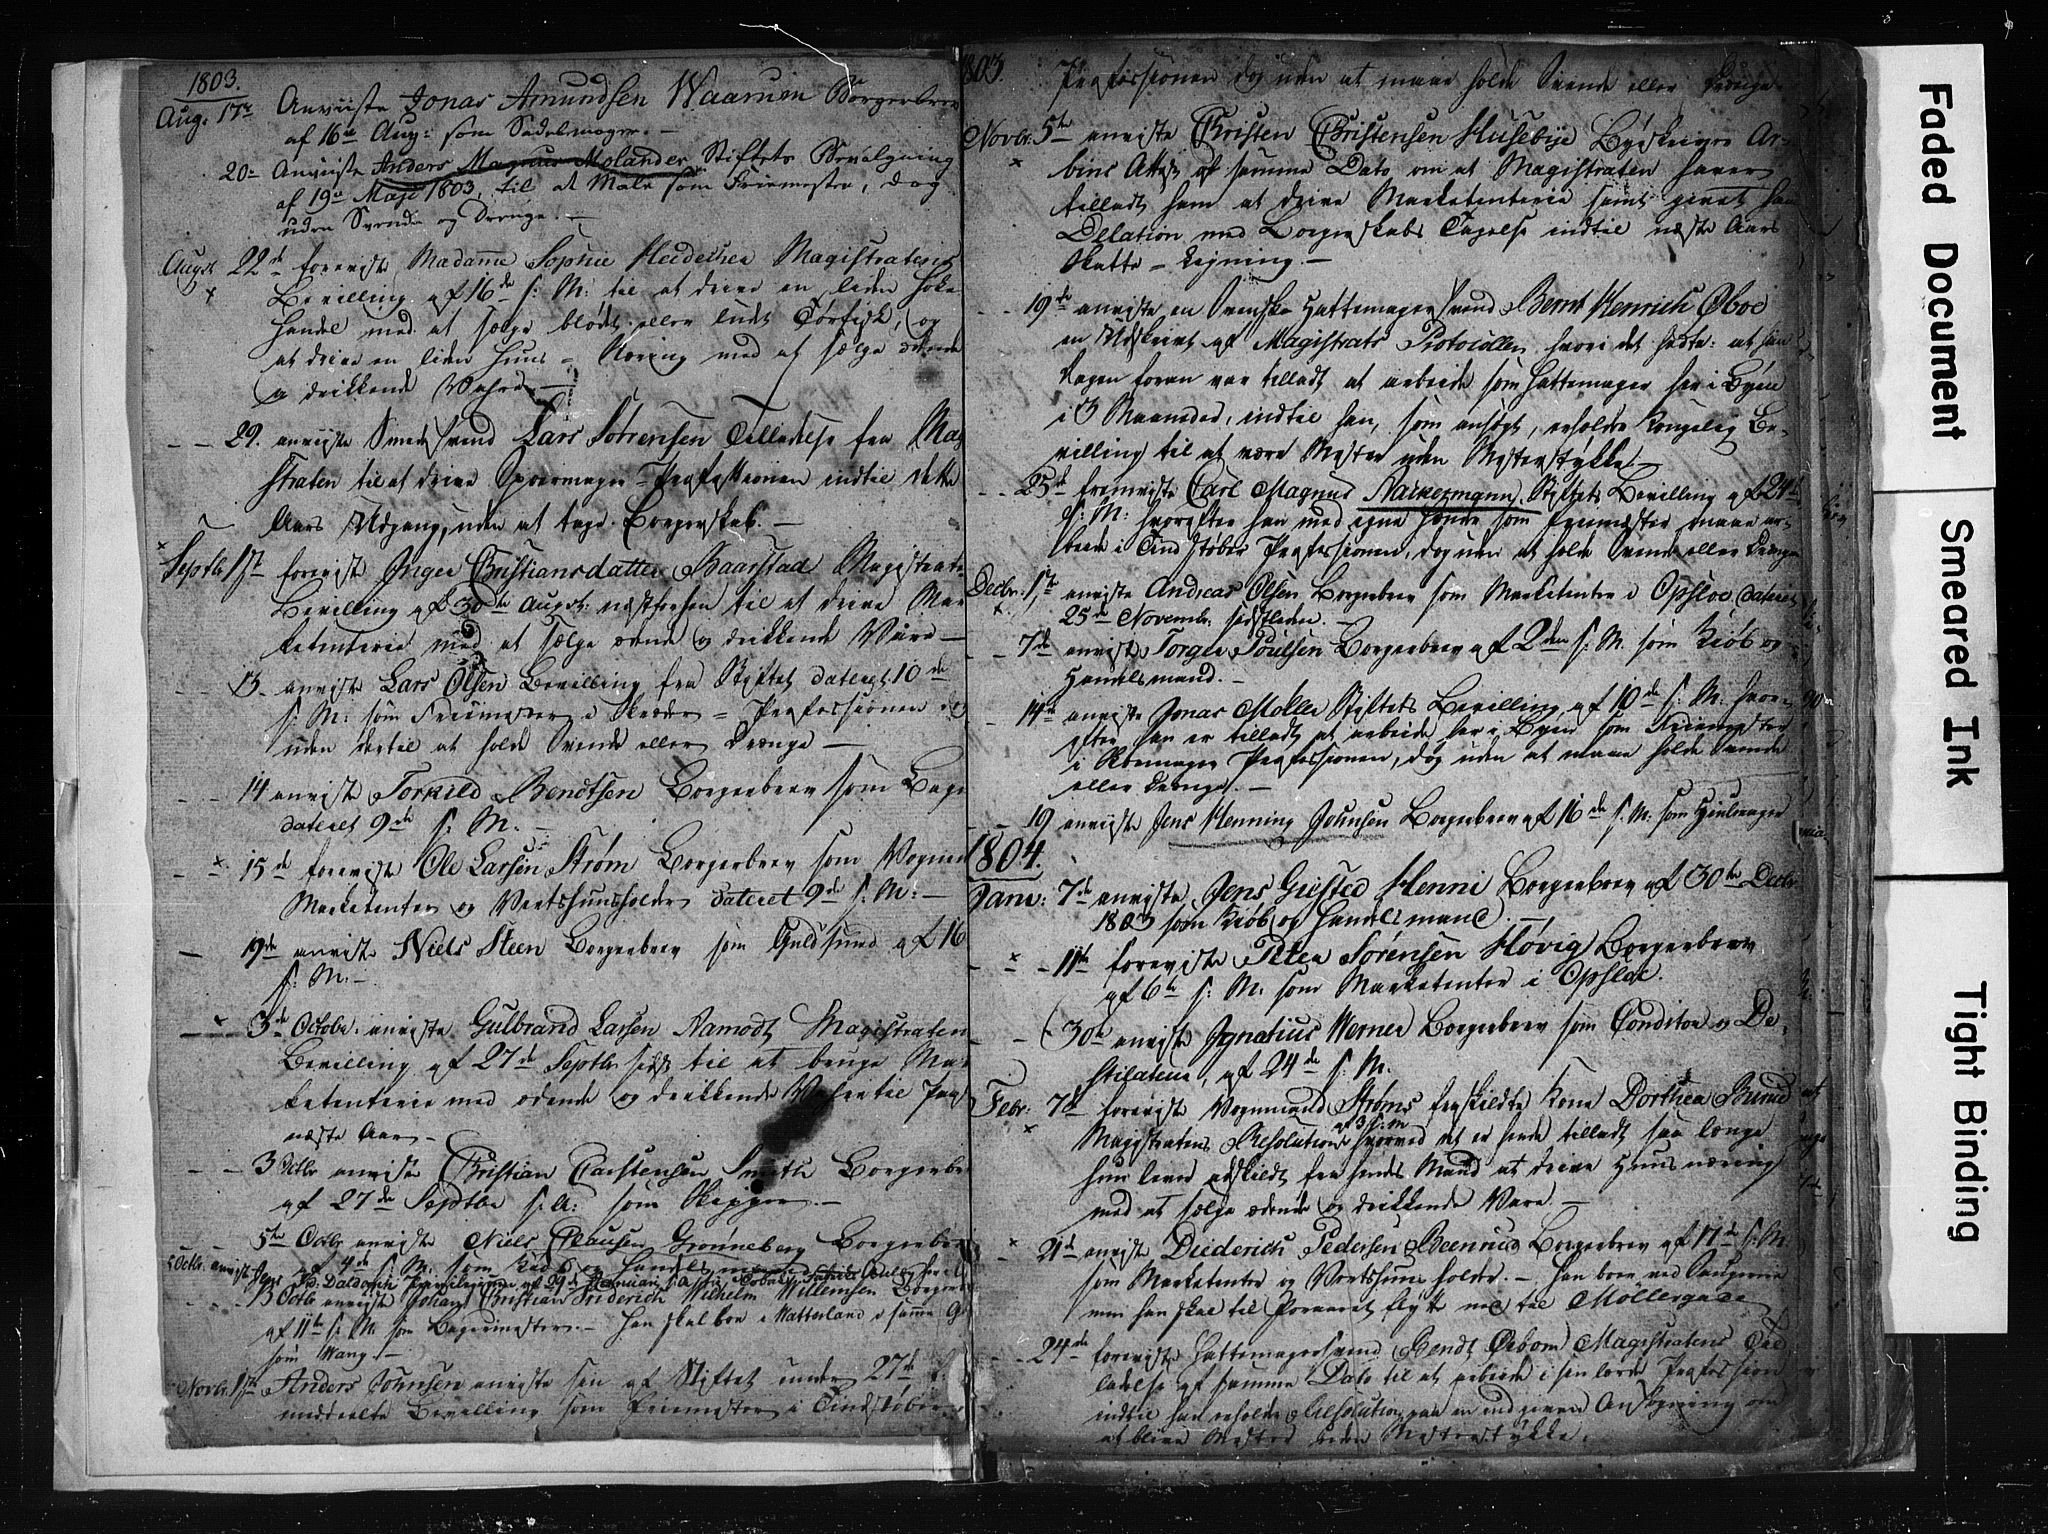 1803.
Aug: 17de Anviiste Jonas Amundsen Waarnien Borgerbrev
af 16de Aug: som Sadelmager. —
20de Anviiste Anders Magnus Molander Stiftets Bevilgning
af 19de Maji 1803, til at Male som Friemester, dog
uden Svenden og Drenge. —
Augst 22de foreviste Madamme Sophie Heidecher Magistratens
Bevilling af 16de s: M: til at drive en liden Høke
Handel med at sælge blødt eller ludt Tørfisk, og
at drive en liden Huus = Næring med at sælge ædende
og drikkende Vahre. —
— — 29. anviiste Smedsvend Lars Sørensen Tilladelse fra Magi
straten til at drive Sporemager = Professionen indtil dette
Aars Udgang, uden at tage Borgerskab. —
Septbr 1ste foreviste Inger Christiansdatter Haarstad Magistrat:
Bevilling af 30te Augst: næstforhen til at drive Mar
ketenterie med at sælge ædende og drikkende Vare —
— — 13. anviste Lars Olsen Bevilling fra Stiftet dateret 10de
s: M: som Friemester i Skræder = Professionen
uden dertil at holde Svende eller Drenge —
— — 14 anviste Torkild Bendtsen Borgerbrev som Bager
dateret 9de s: M. —
— × 15de foreviste Ole Larsen Strøm Borgerbrev som Vogmand
Marketenter og Vertshuusholder dateret 9de s: M: —
— 19de anviste Niels Steen Borgerbrev som Guldsmed af 16
s: M: —
— × 3de Octobr: anviste Gulbrand Larsen Aamodt Magistraten
Bevilling af 27de Septbr sidst til at bruge Mar
ketenterie med ædende og drikkende Vahre til
næste Aar —
— — 3 Octbr anviste Christian Carstensen Smith Borgerbr
af 27de Septbr s: A: som Skipper. —
— 5te Octbr anviste Niels Clausen Grønneberg Borgerbrev
af 4de s: M. som Kiøb og Handelsmand
5 Octbr. anviste Jens P. Daldorph Privilegium af 29de Januari s: A:
— 13 Octbr anviste Johan Christian Friderich Wilhelm Willemsen Borgerbrev
af 11te s: M: som Bagermester. — Han skal boe i Watterland i samme G
som Wang. —
Novbr 1ste Anders Johnsen anviste sin af Stiftet under 27de
meddeelte Bevilling som Friemester i Tindstøber
1803. Professionen dog uden at maae holde Svende eller Drenge
Novbr. 5te anviste Christen Christensen Husebye Byskriver Ar-
bins Attest af samme Dato om at Magistraten haver
tilladt ham at drive Marketenterie samt givet ham
Dilation med Borgerskabs Tagelse indtil næste Aars
Skatte-Ligning. —
— — 19de anviste en Svenske Hattemagersvend Bernt Henrich Oboe
en Udskrivt af Magistrats Protocollen hvori det hedte: at han
dagen foran var tilladt at arbeide som Hattemager her i Byen
i 3 Maaneder, indtil han, som ansøgt, erholder Kongelig Be-
villing til at være Mester uden Mesterstykke.
— — 25de fremviste Carl Magnus Nackermann Stiftets Bevilling af 24de
s: M: hvorefter han med egne Hænder som Friemester maae ar-
beide i Tindstøber Professionen, dog uden at holde Svende eller Drenge
Decbr: 1ste anviste Andreas Olsen Borgerbrev som Marketenter i Opsloe dateret
25de Novembr. sidstleden. —
— 7de anviste Torger Poulsen Borgerbrev af 2den s: M. som Kiøb og
Handelsmand. —
— 14de anviste Jonas Moller Stiftets Bevilling af 10de s: M. hvor-
efter han er tilladt at arbeide her i Byen som Friemester
i Skomager Professionen, dog uden at maae holde Svende
eller Drenge. —
— 19 anviste Jens Henning Johnsen Borgerbrev af 16de s: M. som Hiulmager
1804.
Janr: 7de anviste Jens Grested Henni Borgerbrev af 30te Decbr
1803 som Kiøb og Handelsmand. —
— × — 11te foreviste Peter Sørensen Høvig Borgerbrev
af 6te s: M. som Marketenter i Opsloe.
— — 30te anviste Ignatius Werner Borgerbrev som Conditor og De-
stilateur, af 24de s: M.
Febr: 7de foreviste Vognmand Strøms fraskildte Kone Dorthea Burud
Magistratens Resolution af 3 s: M hvorved det er hende tilladt saa longe
hun lever adskildt fra hendes Mand at drive Huusnæring
med at sælge ædende og drikkende Vare. —
× 21de anviste Diederich Pedersen Beenrud Borgerbrev af 17de s: M:
som Marketenter og Vertshuusholder. — Han boer ved
men han skal til Foraaret flytte ned til Mollergaden
— — 24de foreviste Hattemagersvend Bendt Oxbom Magistratens Til
ladelse af samme Dato til at arbeide i sin lærde Profession
indtil han erholder Resolution paa en indgiven Ansøgning om
at blive Mester uden Mesterstykke.
Faded Document
Smeared Ink
Tight Binding